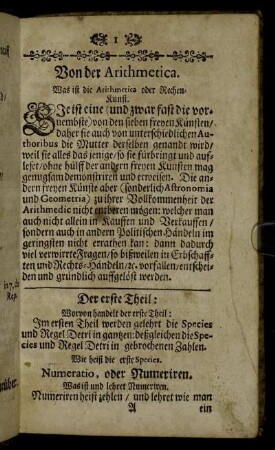 1
Von der Arithmetica.
Was ist die Arithmetica oder Rechen-
Kunst.
SIe ist eine (und zwar fast die vor-
nembste) von den sieben freyen Künsten/
daher sie auch von unterschiedlichen Au-
thoribus die Mutter derselben genandt wird/
weil sie alles das jenige/ so sie fürbringt und auf-
löset/ ohne hülff der andern freyen Künsten mag
gemugsam demonstriren und erweisen. Die an-
dern freyen Künste aber (sonderlich Astronomia
und Geometria) zu ihrer Vollkommenheit der
Arithmedic nicht entbären mögen: welcher man
auch nicht allein in Kauffen und Verkauffen/
sondern auch in andern Politischen Händeln im
geringsten nicht errathen kan: dann dadurch
viel verwirrte Fragen/ so bißweilen in Erbschaff-
ten und Rechts-Händeln/ &c. vorfallen/ entschei-
den und gründlich aufgelöst werden.
Der erste Theil:
Worvon handelt der erste Theil:
Im ersten Theil werden gelehrt die Species
und Regel Detri in gantzen: deßgleichen die Spe-
cies und Regel Detri in gebrochenen Zahlen.
Wie heist die erste Species.
Numeratio, oder Numeriren.
Was ist und lehret Numeriren.
Numeriren heist zehlen/ und lehret wie man
A ein